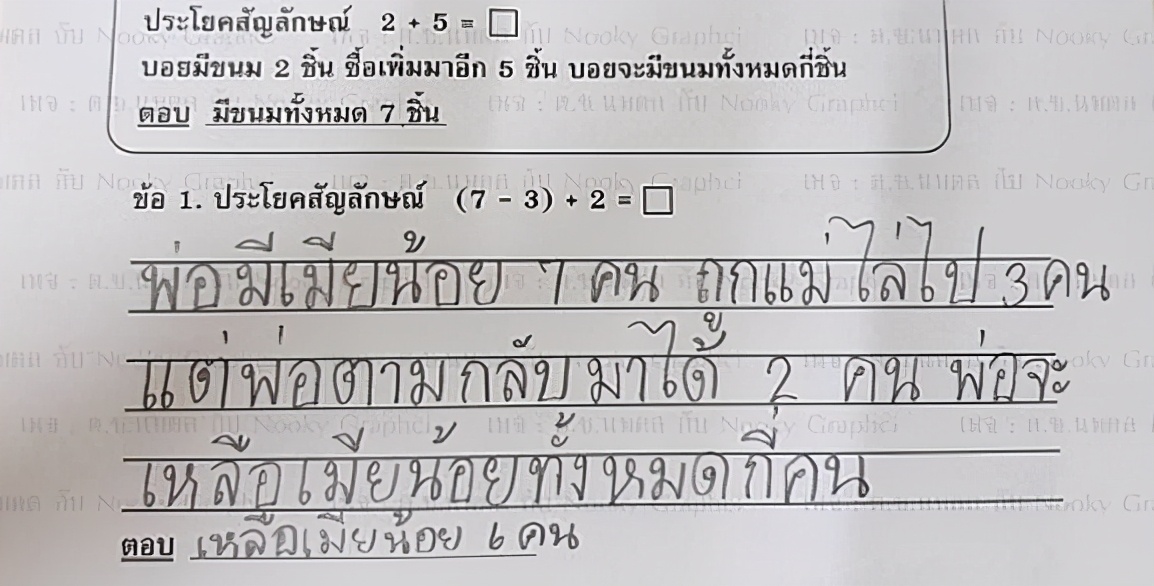 ประโยคสัญลักษณ์ 2 + 5 = □
บอยมีขนม 2 ชิ้น ซื้อเพิ่มมาอีก 5 ชิ้น บอยจะมีขนมทั้งหมดกี่ชิ้น
ตอบ มีขนมทั้งหมด 7 ชิ้น
ข้อ 1. ประโยคสัญลักษณ์ (7 - 3) + 2 = □
พ่อมีเมียน้อย 7 คน ถูกแม่ไล่ไป 3 คน
แต่พ่อตามกลับมาได้ 2 คน พ่อจะ
เหลือเมียน้อยทั้งหมดกี่คน
ตอบ เหลือเมียน้อย 6 คน